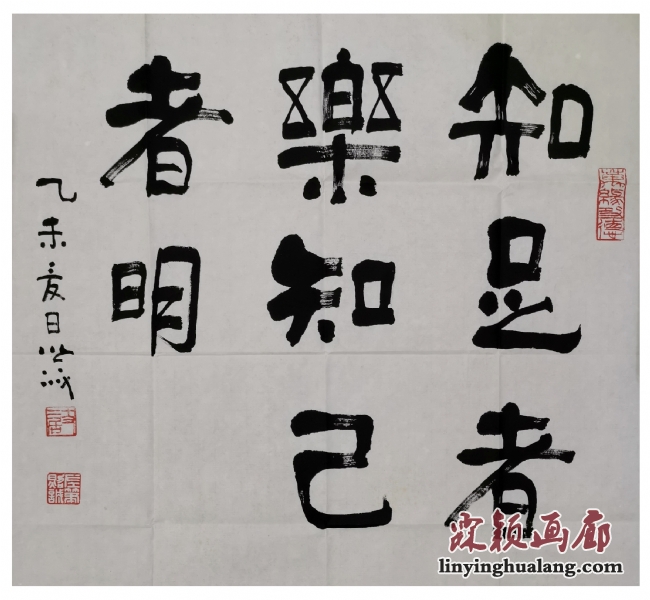 知足者
樂知己
者明
乙未夏日
霖颖画廊
linyinghualang.com